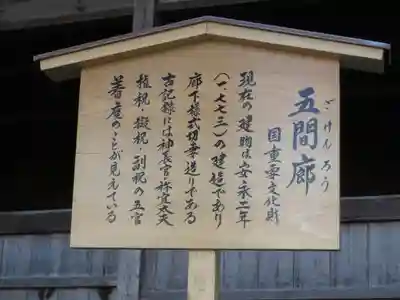 五間廊
ごけんろう
国重要文化財
現在の建物は安永二年
(一七七三)の建造であり
廊下様式切妻造りである
古記録には神長官・祢宜大夫
権祝・擬祝・副祝の五官
着座のことが見えている